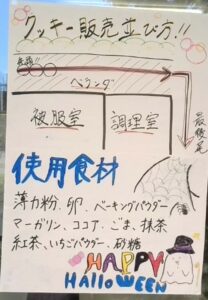 クッキー販売並び方!!
先頭!!
ベランダ
被服室
調理室
最後尾
使用食材
薄力粉、卵、ベーキングパウダー
マーガリン、ココア、ごま、抹茶
紅茶、いちごパウダー、砂糖
HAPPY
HalloWEEN